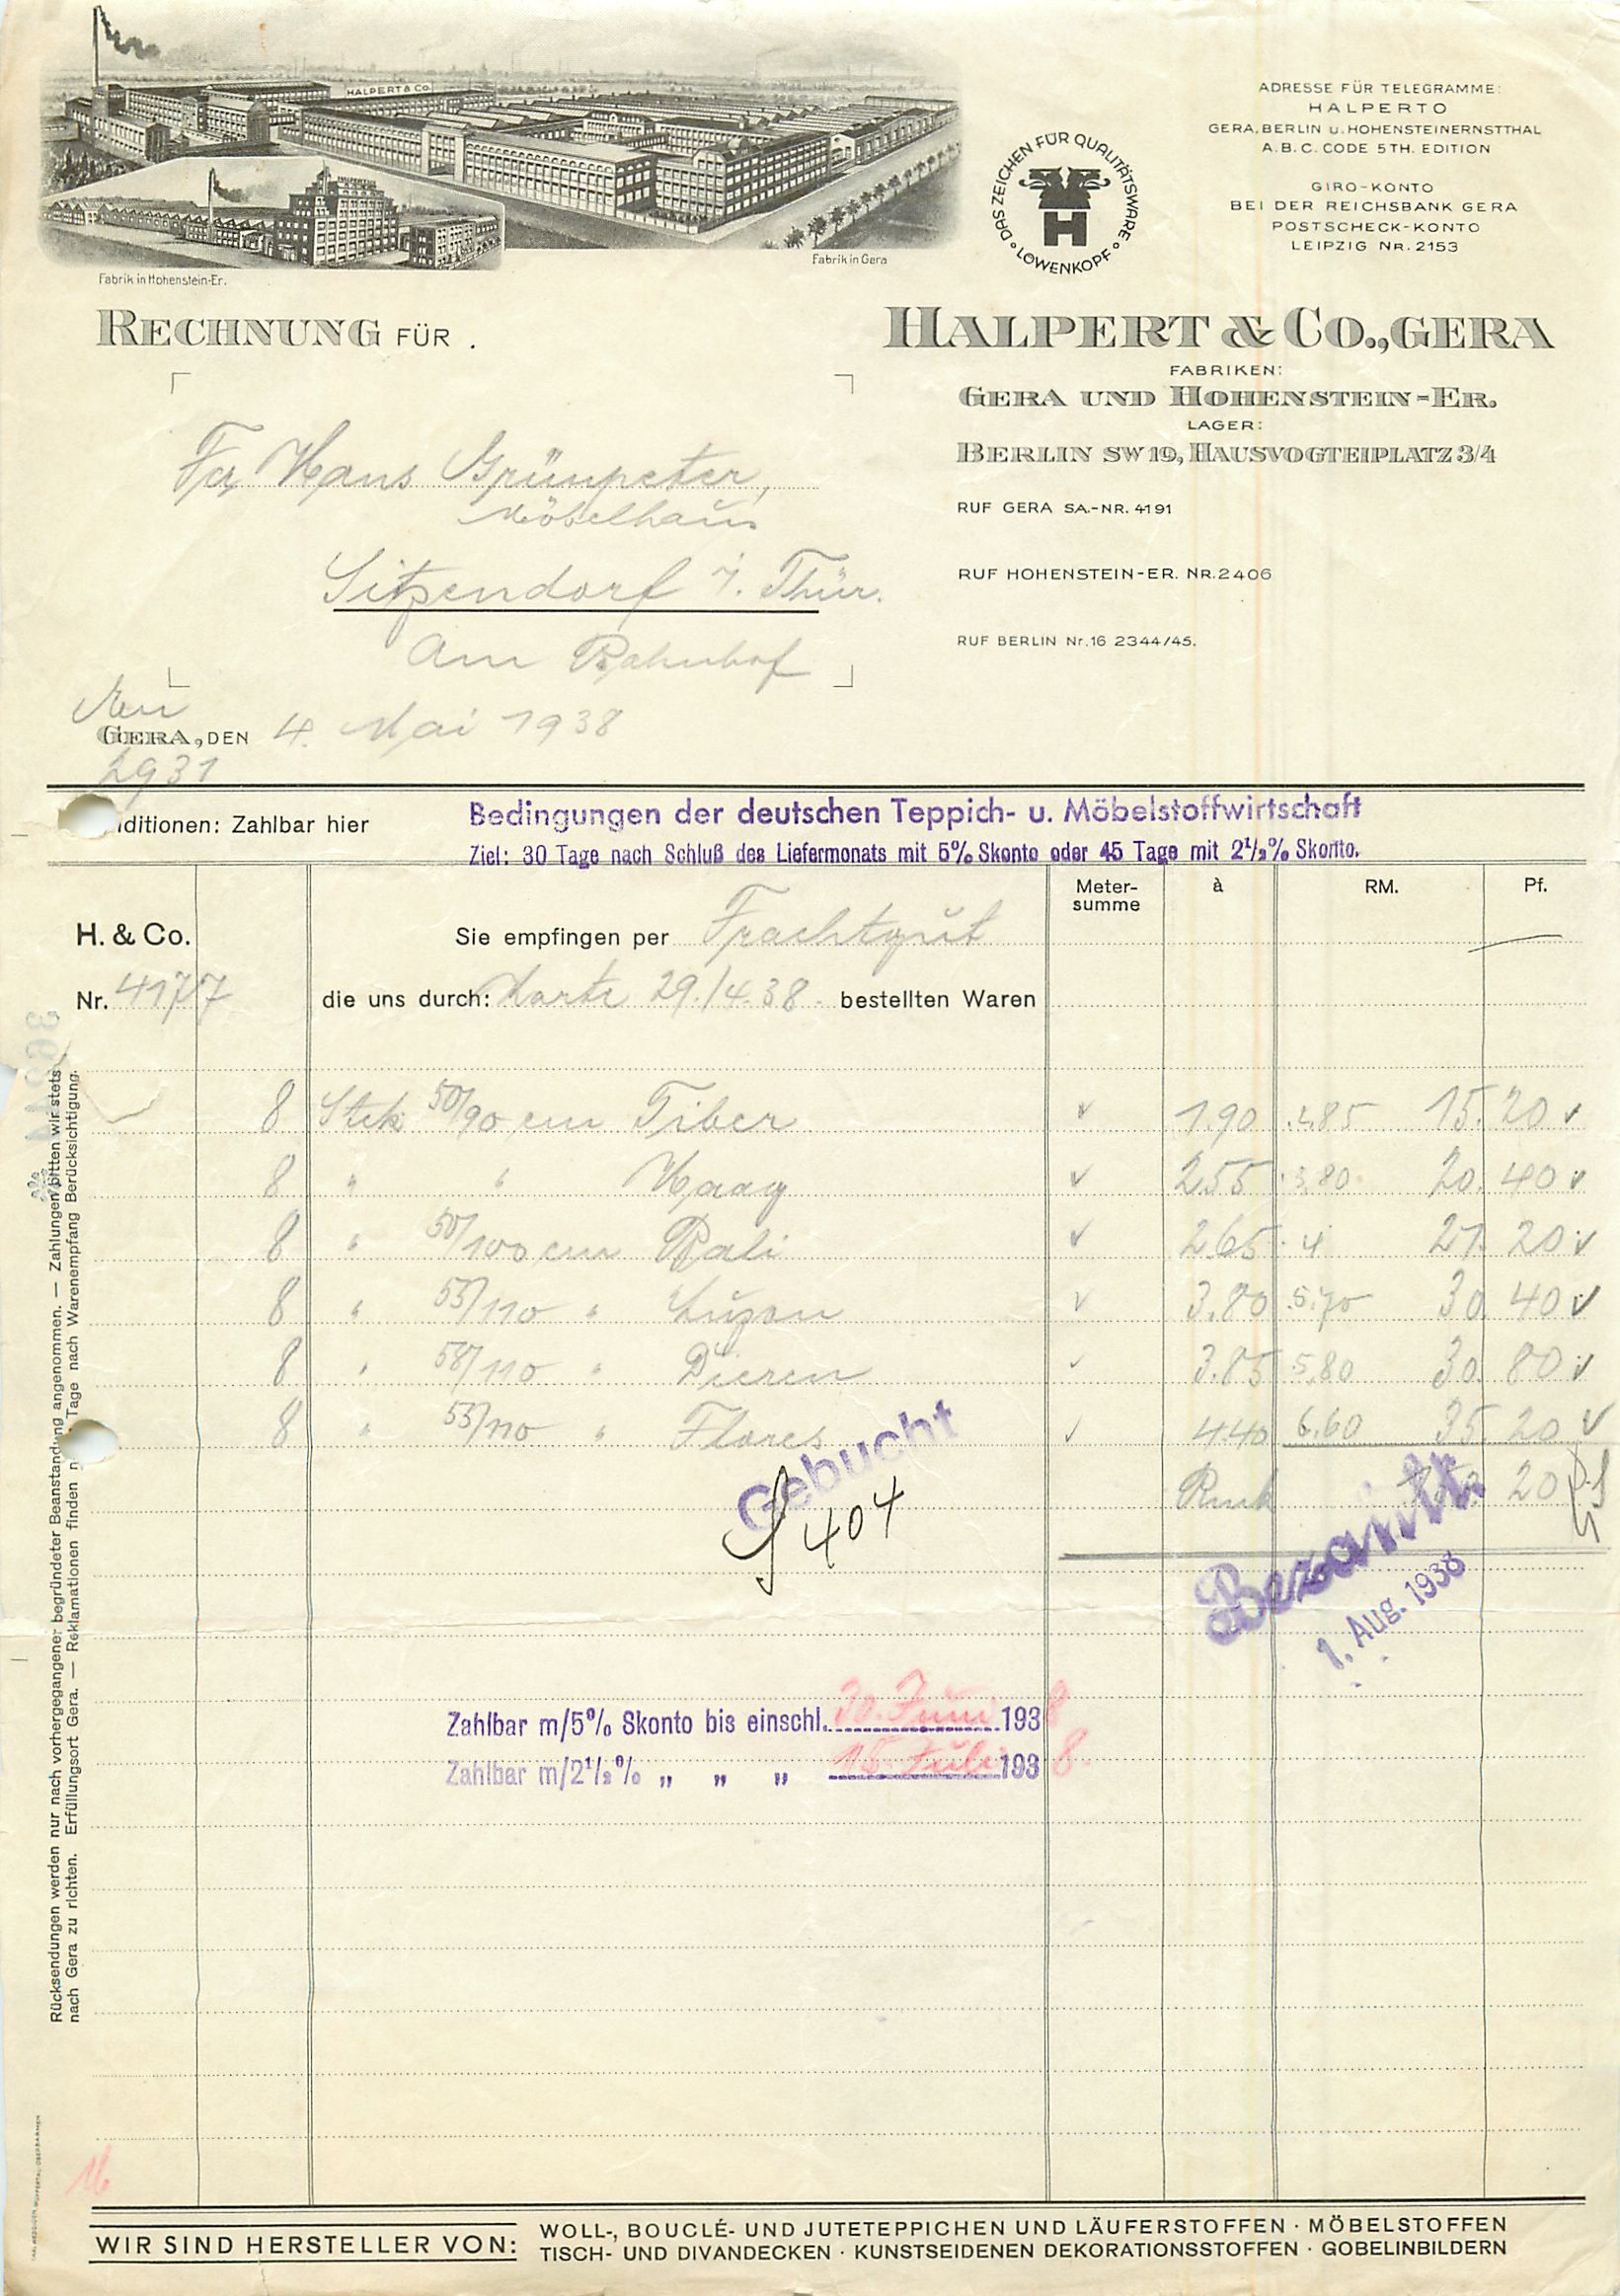 HALPERT & Co.
Fabrik in Hohenstein-Er.
Fabrik in Gera
DAS ZEICHEN FÜR QUALITÄTSWARE
LÖWENKOPF
H
ADRESSE FÜR TELEGRAMME:
HALPERTO
GERA, BERLIN u. HOHENSTEINERNSTTHAL
A.B.C. CODE 5TH. EDITION
GIRO-KONTO
BEI DER REICHSBANK GERA
POSTSCHECK-KONTO
LEIPZIG NR. 2153
RECHNUNG FÜR .
HALPERT & CO., GERA
FABRIKEN:
GERA UND HOHENSTEIN-ER.
LAGER:
BERLIN SW 19, HAUSVOGTEIPLATZ 3/4
RUF GERA SA.-NR. 4191
RUF HOHENSTEIN-ER. NR. 2406
RUF BERLIN Nr. 16 2344/45.
Fa. Hans Grünpeter,
Möbelhaus
Sitzendorf i. Thür.
Am Bahnhof
GERA, DEN 4. Mai 1938
2931
ditionen: Zahlbar hier
Bedingungen der deutschen Teppich- u. Möbelstoffwirtschaft
Ziel: 30 Tage nach Schluß des Liefermonats mit 5% Skonto oder 45 Tage mit 2½% Skonto.
Meter-summe à RM. Pf.
H. & Co. Sie empfingen per Frachtgut
Nr. 4177 die uns durch: Karte 29./4.38. bestellten Waren
8 Stck 50/90 cm Tiber 1.90 2.85 15.20
8 " " Haag 2.55 3.80 20.40
8 " 50/100 cm Bali 2.65 4 21.20
8 " 55/110 " Luzon 3.80 5.70 30.40
8 " 58/110 " Dieren 3.85 5.80 30.80
8 " 55/110 " Flores 4.40 6.60 35.20
Gebucht
404
20
Bezahlt
1. Aug. 1938
Zahlbar m/5% Skonto bis einschl. 30. Juni 1938
Zahlbar m/2½% „ „ „ 15. Juli 1938.
Rücksendungen werden nur nach vorhergegangener begründeter Beanstandung angenommen. — Zahlungen bitten wir stets
nach Gera zu richten. Erfüllungsort Gera. — Reklamationen finden n Tage nach Warenempfang Berücksichtigung.
16
WIR SIND HERSTELLER VON:
WOLL-, BOUCLÉ- UND JUTETEPPICHEN UND LÄUFERSTOFFEN · MÖBELSTOFFEN
TISCH- UND DIVANDECKEN · KUNSTSEIDENEN DEKORATIONSSTOFFEN · GOBELINBILDERN